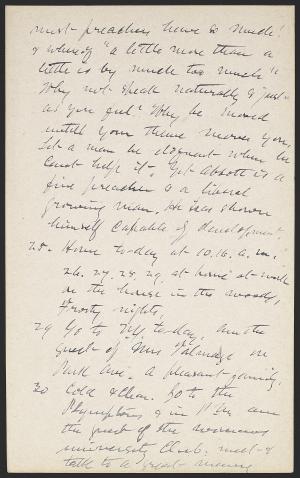 most preachers have so much!
& whereof "a little more than a
little is by much too much."
Why not speak naturally & just
as you feel? Why be moved
untill your theme moves you,
Let a man be eloquent when he
cant help it. Yet Abbott is a
fine preacher & a liberal
growing man. He has shown
himself capable of development.
25. Home to-day at 10.16. a.m.
26. 27. 28. 29. at home at work
on the house in the woods,
Frosty nights,
29 Go to N.Y. to-day, am the
guest of Mrs Talmadge on
Park Ave. a pleasant family,
30 Cold & clear. Go to the
Plymptons & in P.M. am
the guest of the
university Club. meet &
talk to a great many